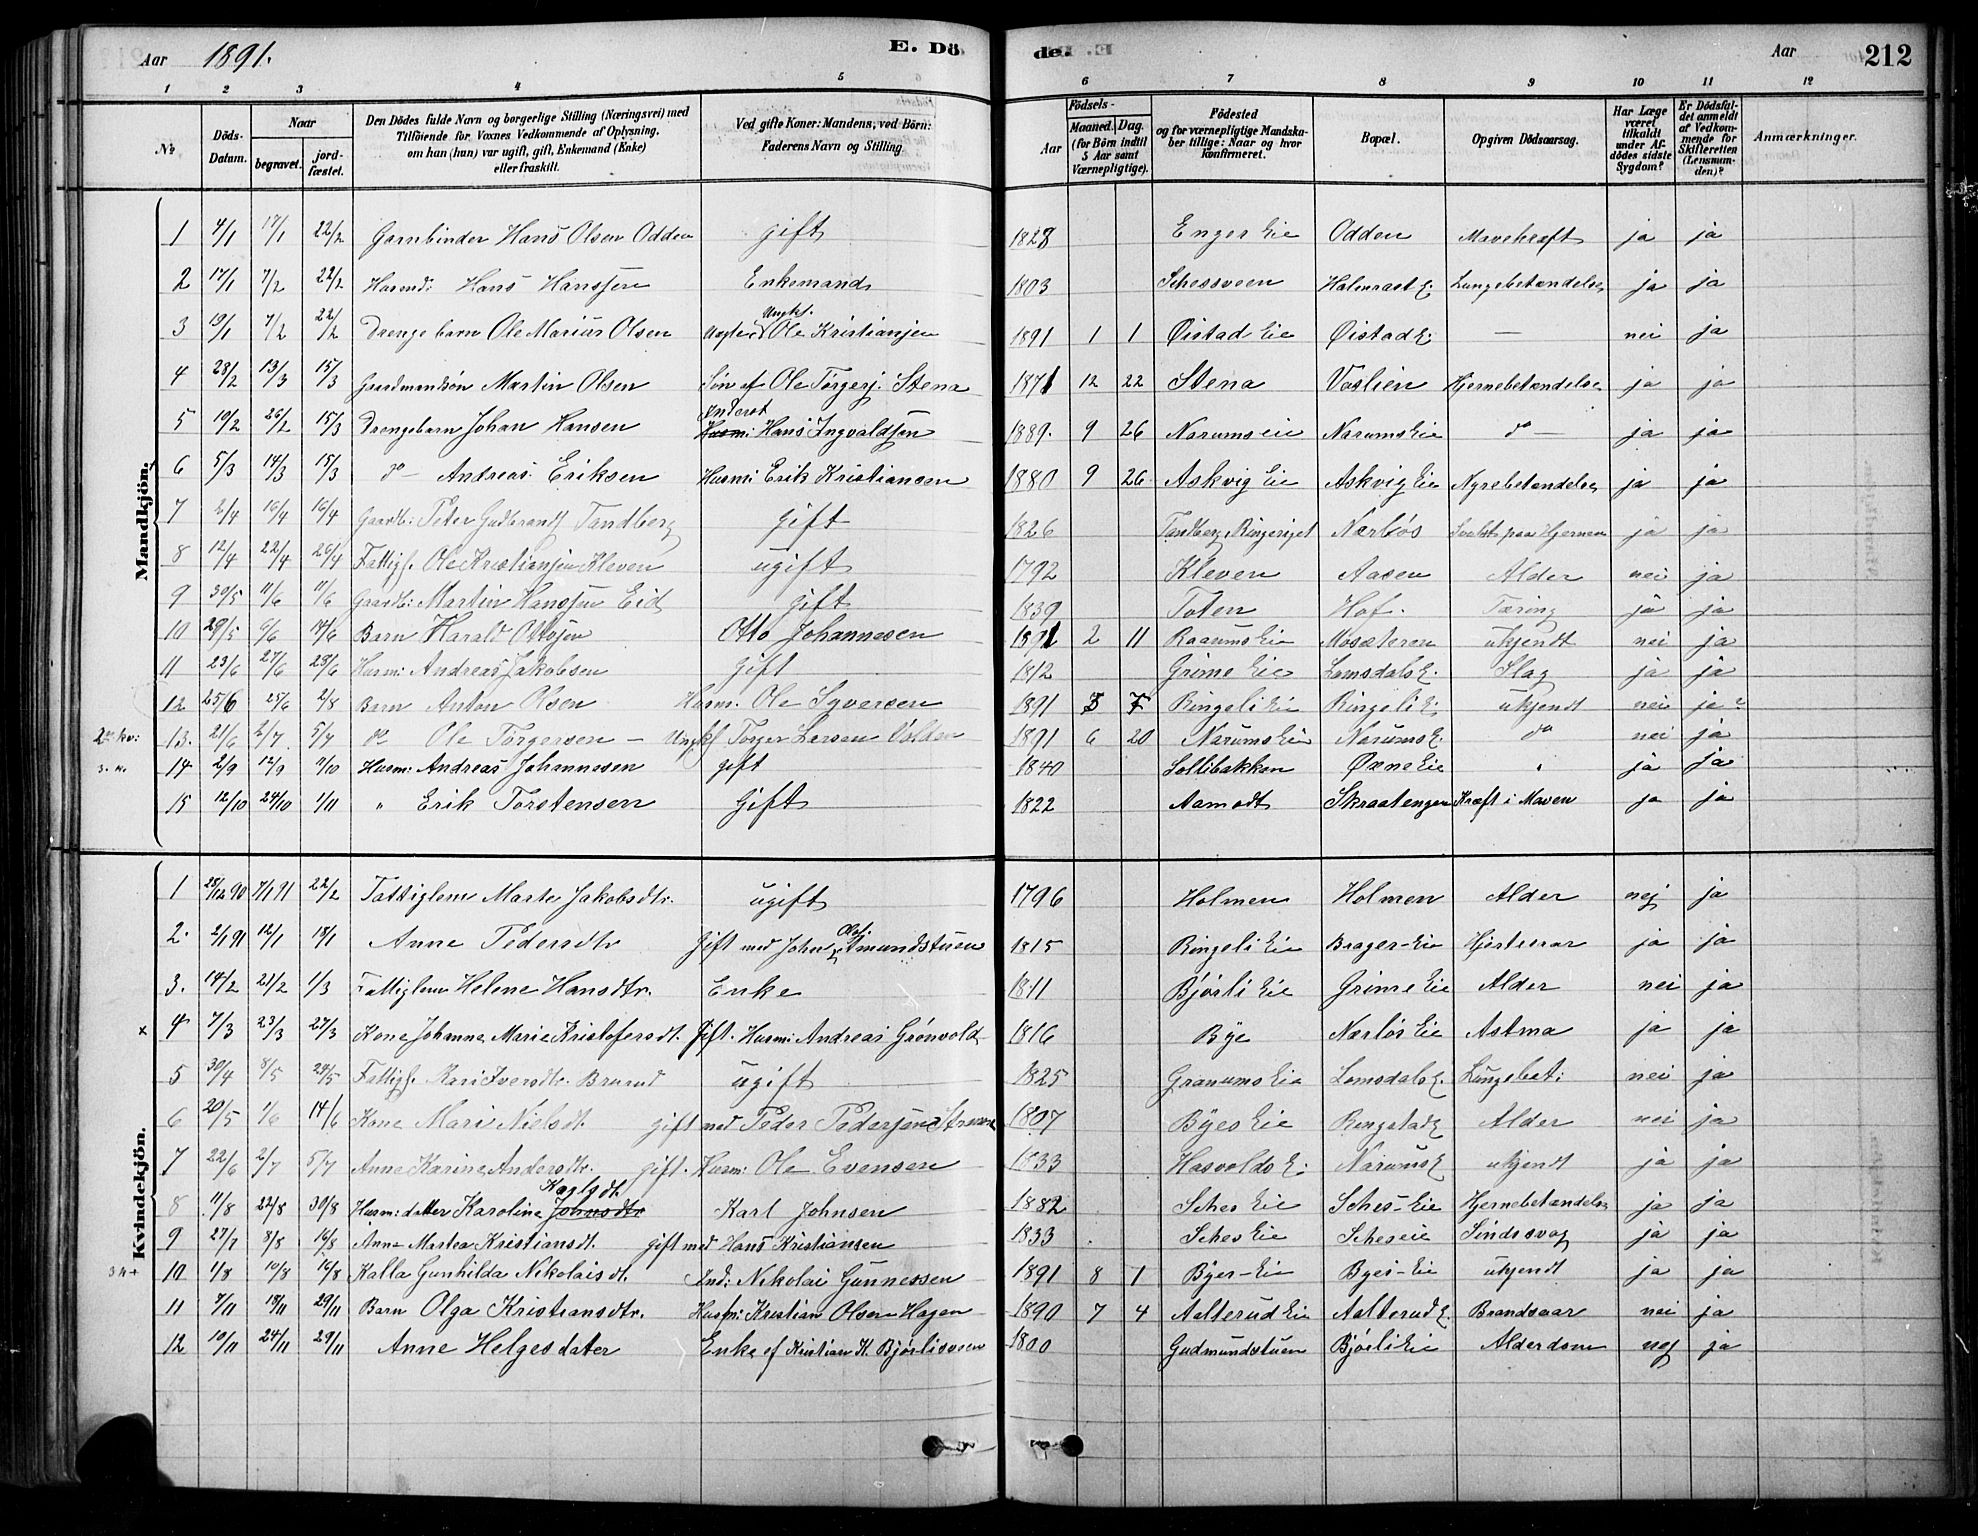 Aar 1891. E. Dö de. Aar 212
1 2 3 4 5 6 7 8 9 10 11 12
No Döds-Datum. Naar begravet. jordfæstet. Den Dödes fulde Navn og borgerlige Stilling (Næringsvei) med Tilföiende for Voxnes Vedkommende af Oplysning, om han (hun) var ugift, gift, Enkemand (Enke) eller fraskilt. Ved gifte Koner: Mandens, ved Börn: Faderens Navn og Stilling Aar Födsels- Maaned. Dag. (for Börn indtil 5 Aar samt Værnepligtige). Födested og for værnepligtige Mandskaber tillige: Naar og hvor Konfirmeret. Bopæl. Opgiven Dödsaarsag. Har Læge været tilkaldt under Afdödes sidste Sygdom? Er Dödsfaldet anmeldt af Vedkommende for Skifteretten (Lensmanden)? Anmærkninger.
Mandkjön.
1 4/1 17/1 22/2 Garnbinder Hans Olsen Odden gift 1828 Enger Eie Odden Mavekræft ja ja
2 17/1 7/2 22/2 Husmd: Hans Hanssen Enkemand 1803 Schessveen Holmrast E. Lungebetændelse ja ja
3 19/1 7/2 22/2 Drengebarn Ole Marius Olsen Ungk. Ole Kristiansen 1891 1 1 Øistad Eie Øistad E. — nei ja
4 28/2 13/3 15/3 Gaardmandsön Martin Olsen Sön af Ole Torgersj. Stena 1871 12 22 Stena Vaslien Hjernebetændelse ja ja
5 19/2 26/2 15/3 Drengebarn Johan Hansen Inderst Husm: Hans Ingvaldsen 1889. 9 26 Narums eie Narums Eie do — ja ja
6 5/3 14/3 15/3 do — Andreas Eriksen Husm: Erik Kristiansen 1880 9 26 Askvig Eie Askvig Eie Nyrebetændelse ja ja
7 2/4 16/4 16/4 Gaardb: Peter Gudbrands Tandberg gift 1826 Tandberg Ringeriget Nærløs Svulst paa Hjernen ja ja
8 12/4 22/4 26/4 Fattigl. Ole Kristiansen Kleven ugift 1792 Kleven Aasen Alder nei ja
9 30/5 11/6 11/6 Gaardb: Martin Hanssen Eid gift 1839 Toten Hof. Tæring ja ja
10 29/5 6/6 14/6 Barn Harald Ottosen Otto Johannesen 1891 2 11 Raarums Eie Mosæteren ukjendt nei ja
11 23/6 27/6 28/6 Husm: Andreas Jakobsen gift 1812 Grime Eie Lomsdals E. Slag ja ja
12 25/6 25/6 2/8 Barn Anton Olsen Husm. Ole Syversen 1891 5 7 Ringeli Eie Ringeli E. ukjendt nei ja
13. 21/6 2/7 5/7 do Ole Torgersen — Ungk Torger Larsen Volden 1891 6 20 Narums Eie Narums E. do nei ja
14 2/9 12/9 11/10 Husm: Andreas Johannesen gift 1840 Sollibakken Øxne Eie " ja ja
15 12/10 24/10 1/11 " Erik Torstensen Gift 1822 Aamodt Skraatengen Kræft i Maven ja ja
Kvindekjön.
1 28/12 90 7/1 91 22/2 Fattiglem Marte Jakobsdtr. ugift 1796 Holmen Holmen Alder nej ja
2. 2/1 91 12/1 18/1 Anne Pedersdtr Gift med Johan Ols. Amundstuen 1815 Ringeli Eie Brager-Eie ja ja
3. 14/2 21/2 1/3 Fattiglem Helene Hansdtr. Enke 1811 Bjørli Eie Grime Eie Alder nei ja
x 4 7/3 23/3 27/3 Kone Johanne Marie Kristofersdt. Gift. Husm: Andreas Grönvold 1816 Bye Nærløs Eie Astma ja ja
5 30/4 8/5 28/5 Fattigl. Kari Iversdtr. Brurud ugift 1825 Granums Eie Lomsdals E. Lungebet: nei ja
6 20/5 1/6 14/6 Kone Mari Nielsdt. gift med Peder Pedersen 1807 Byes Eie Ringstad E Alder nei ja
7 22/6 2/7 5/7 Anne Karine Andersdtr. gift. Husm: Ole Evensen 1833 Hasvolds E. Narums E ukjendt ja ja
8 11/8 22/8 30/8 Husm: datter Karoline Karlsdt. Johnsdtr Karl Johnsen 1882 Sches Eie Sches-Eie Hjernebetændelse ja ja
9 27/7 8/8 16/8 Anne Martea Kristiansdt. gift med Hans Kristiansen 1833 Sches Eie Sches eie Sindssvag ja ja
10 1/8 10/8 16/8 Kalla Gunhilda Nikolaisdt. Ind: Nikolai Gunnessen 1891 8 1 Byes-Eie Byes-Eie ukjendt ja ja
11 7/11 18/11 29/11 Barn Olga Kristiansdtr. Husm: Kristian Olsen Hagen 1890 7 4 Aalterud Eie Aalterud E. Brandsaar nei ja
12 10/11 24/11 29/11 Anne Helgesdater Enke ef Kristian K. Bjørlisveen 1800 Gudmundstuen Bjørli Eie Alderdom nej ja